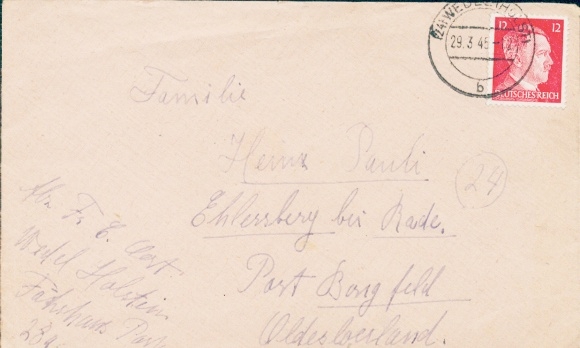 (24) WEDEL (HOLST)
29.3.45.-12
b
12 12
DEUTSCHES REICH
Familie
Heinr Pauli
24
Ehlersberg bei Rade.
Post Bargfeld
Oldesloerland.
Abs. Fr.
Wedel Holstein
Fährhaus